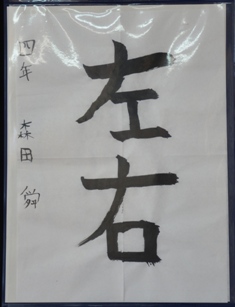 左右
四年 森田